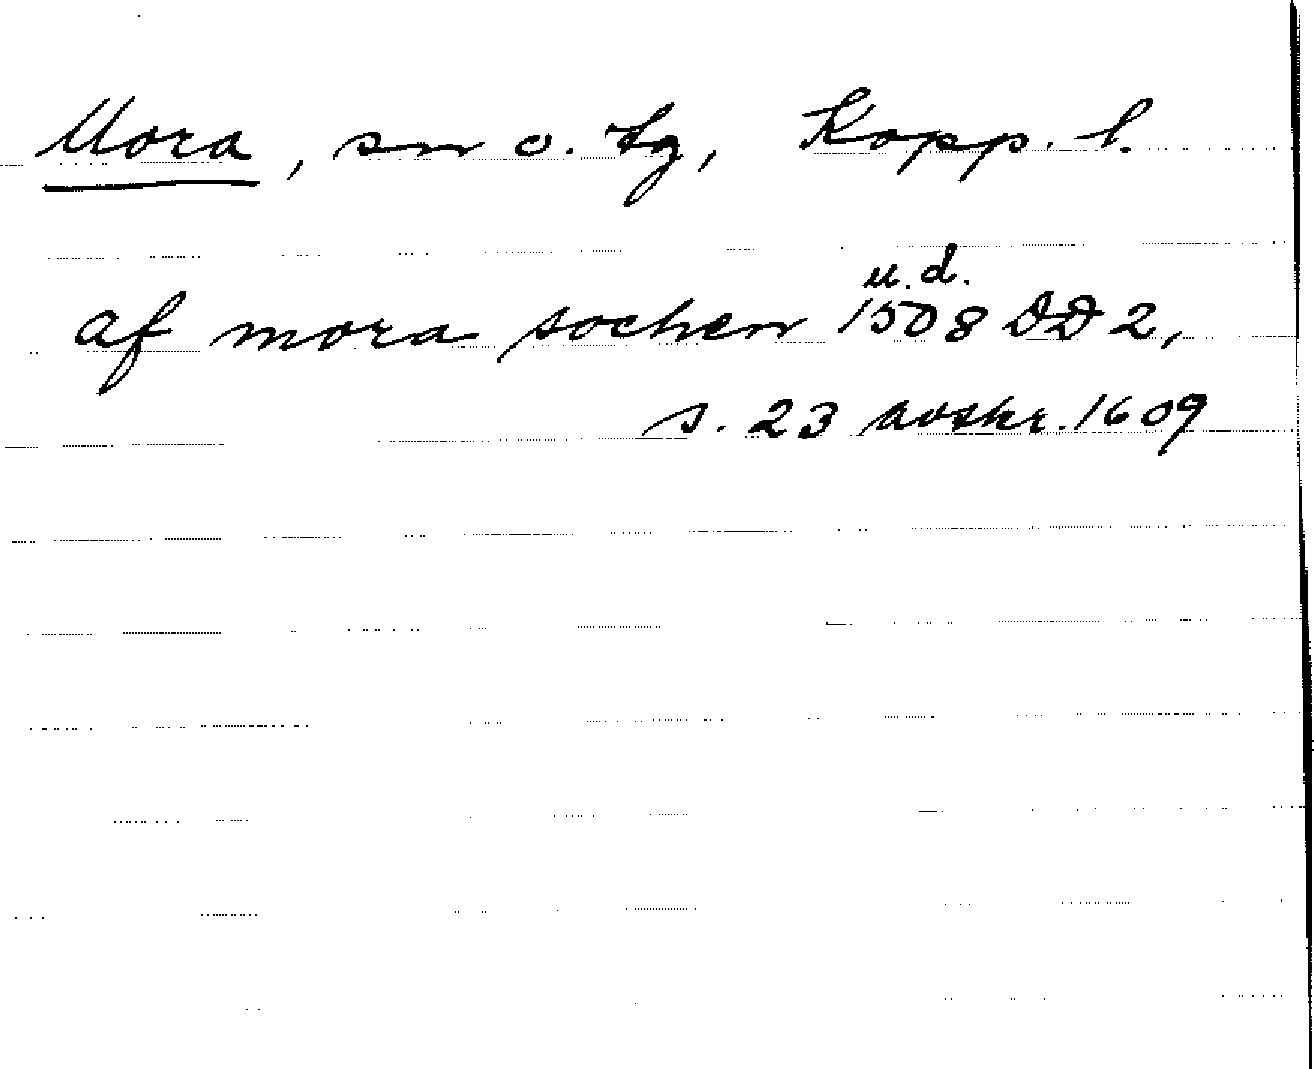 Mora, sn o. tg, Kopp. l.
u. d.
af mora sochen 1508 DD 2,
s. 23 avskr. 1609